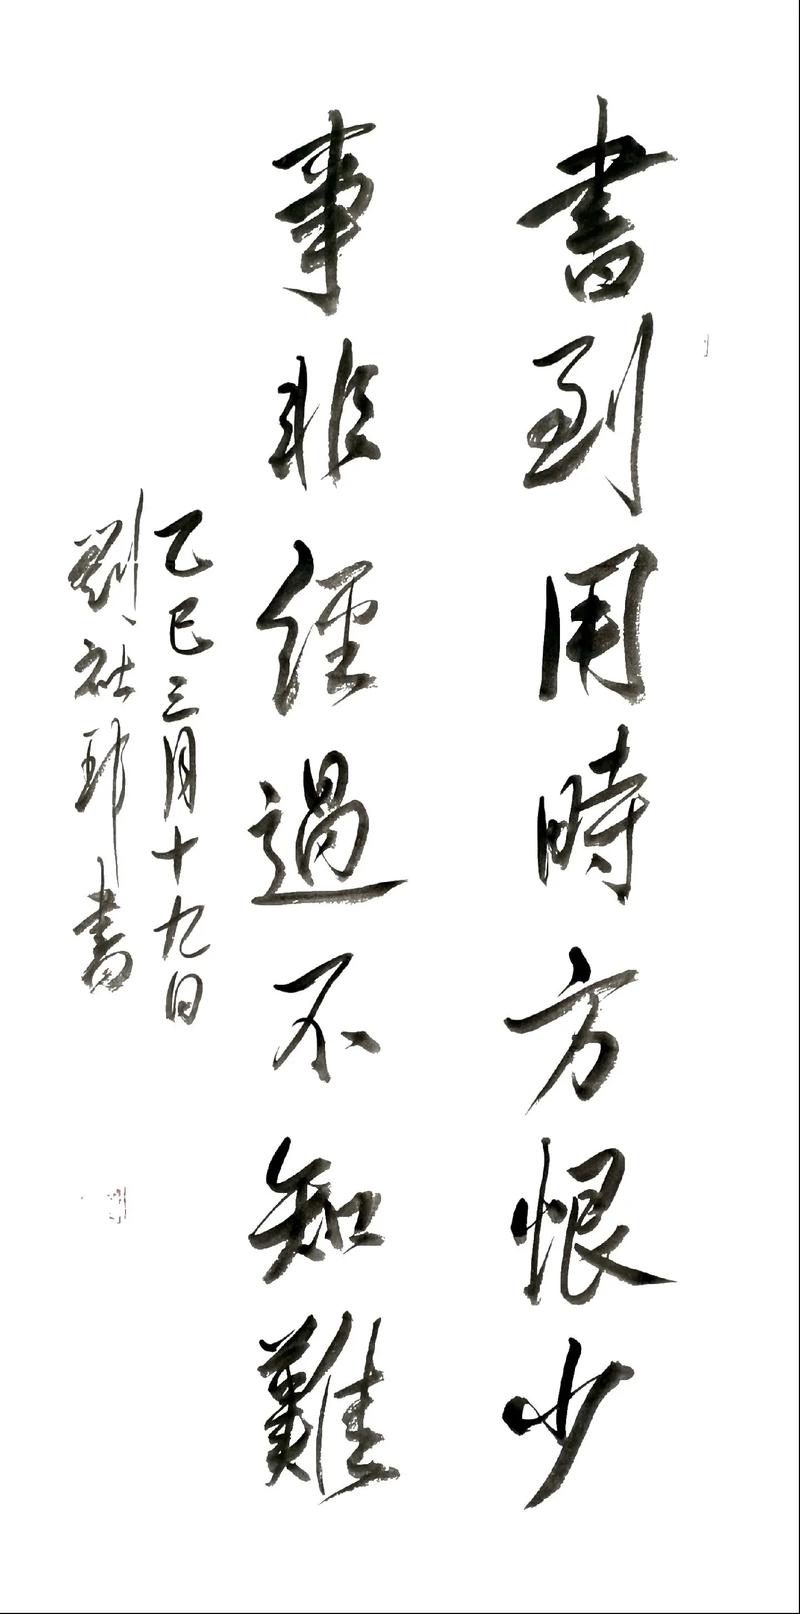 書到用時方恨少
事非經過不知難
乙巳三月十九日
劉社球書